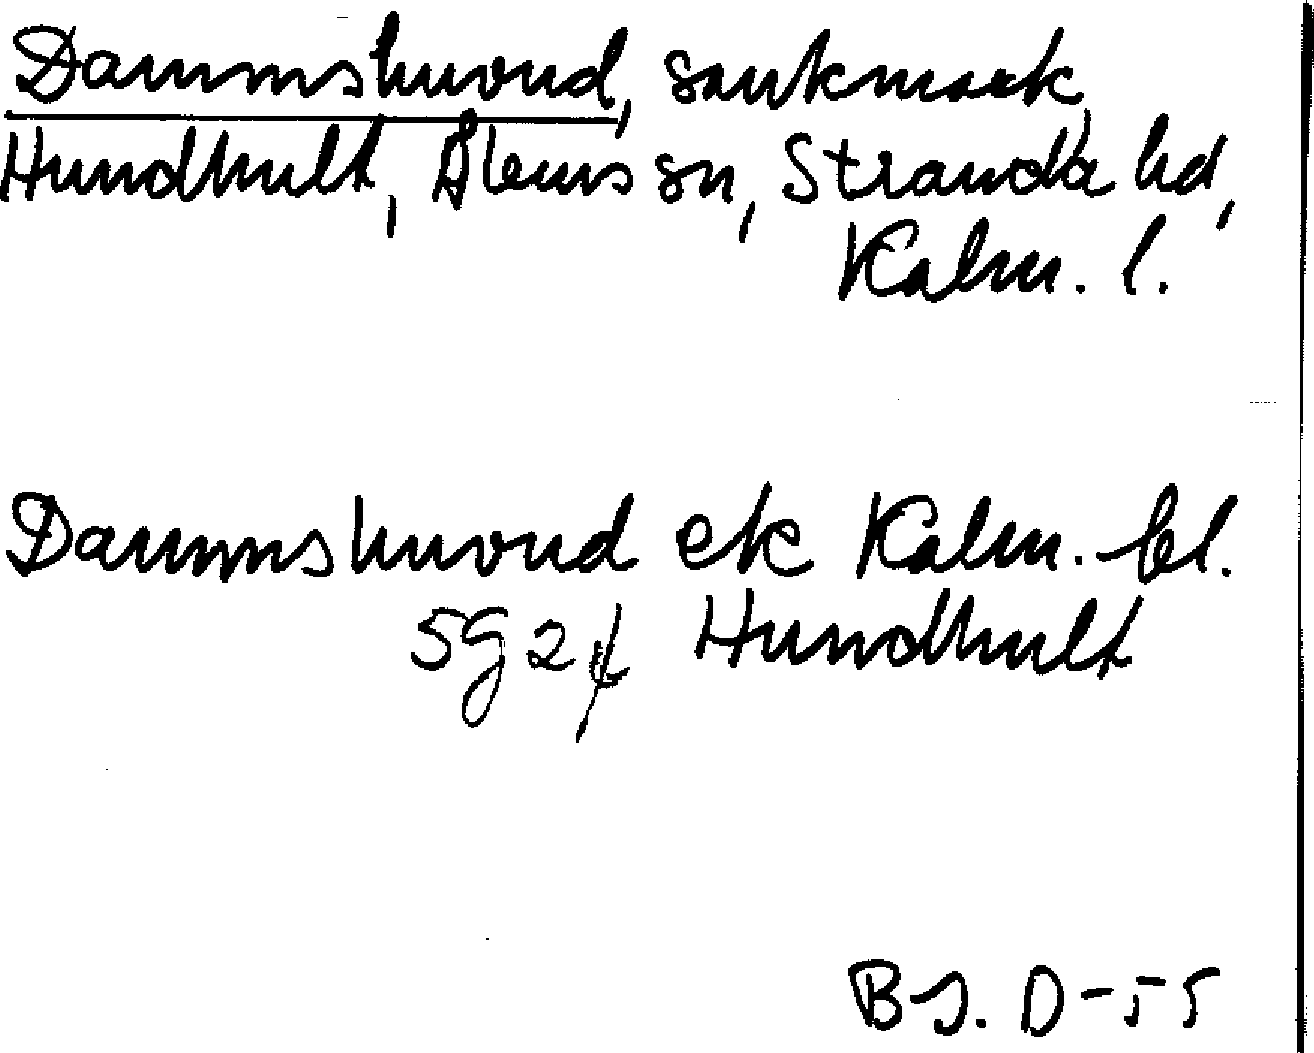 Dammshuvud, sankmark,
Hundhult, Ålems sn, Stranda hd,
Kalm. l.
Dammshuvud ek Kalm.-bl.
5G2f Hundhult
BJ. D-55